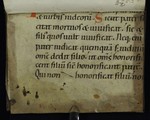 Sicut pater
citat mortuos & uiuificat: sic &
filius quos uult uiuificat. Neq; en
pater iudicat quemquā sed iudiciu
omne dedit filio: ut omes honorifi
cent filiū sic honorificant patre
Qui non honorificat filiū